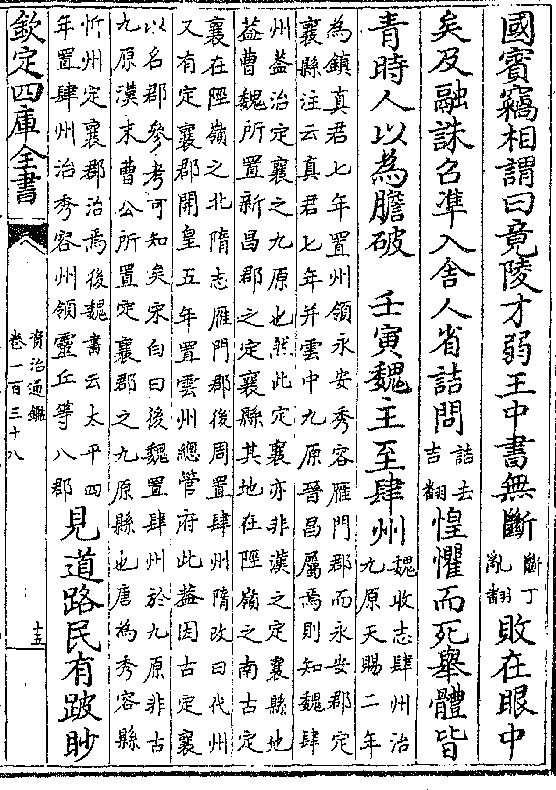 國賓竊相謂曰竟陵才弱王中書無斷斷丁亂翻敗在眼中
矣及融誅召凖入舍人省詰問詰去吉翻惶懼而死舉體皆
青時人以為膽破　壬寅魏主至肆州魏收志肆州治九原天賜二年
為鎮真君七年置州領永安秀容雁門郡而永安郡定
襄縣注云真君七年并雲中九原晉昌屬焉則知魏肆
州葢治定襄之九原也然此定襄亦非漢之定襄縣地
葢曹魏所置新昌郡之定襄縣其地在陘嶺之南古定
襄在陘嶺之北隋志雁門郡後周置肆州隋改曰代州
又有定襄郡開皇五年置雲州總管府此葢因古定襄
以名郡參考可知矣宋白曰後魏置肆州於九原非古
九原漢末曹公所置定襄郡之九原縣也唐為秀容縣
忻州定襄郡治焉後魏書云太平四
年置肆州治秀容州領靈丘等八郡見道路民有跛眇
欽定四庫全書
資治通鑑
卷一百三十八
十五